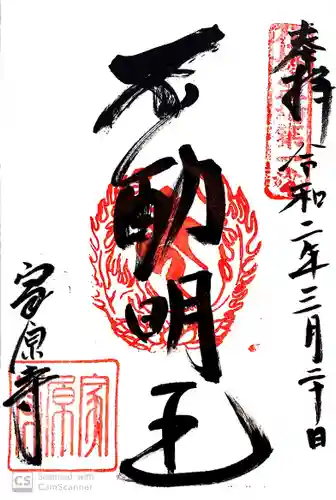 奉拝
令和二年三月二十日
不動明王
家原寺
家原
CS Scanned with
CamScanner